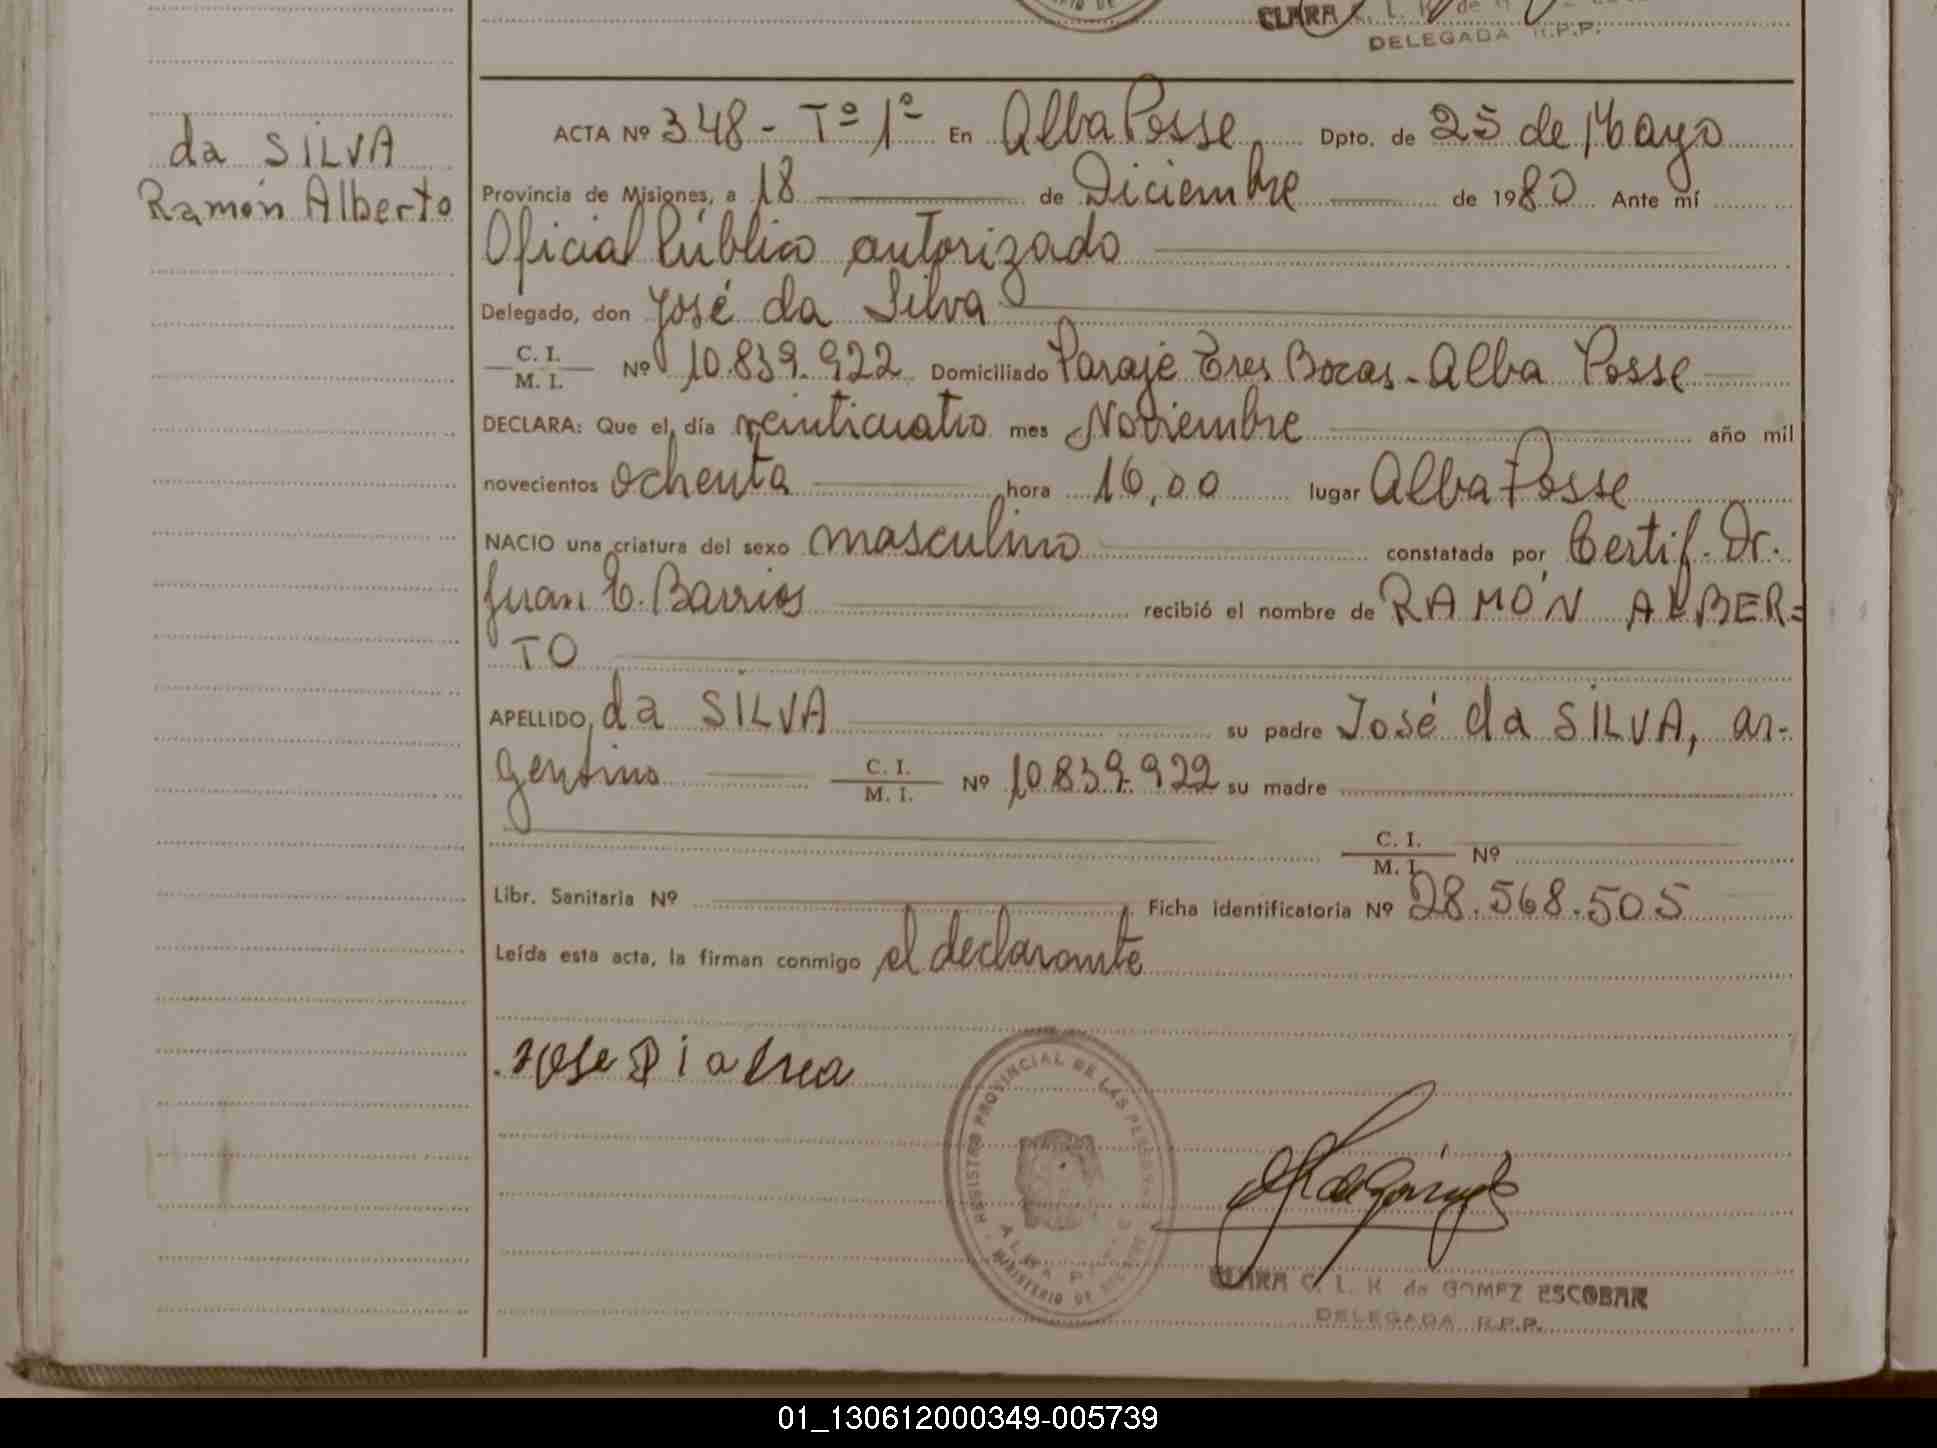 CLARA C. L. K de
DELEGADA R.P.P.
da SILVA
Ramón Alberto
ACTA Nº 348 - Tº 1º En Alba Posse Dpto. de 25 de Mayo
Provincia de Misiones, a 18 de Diciembre de 1980 Ante mí
Oficial Público autorizado
Delegado, don José da Silva
C. I.
M. I. Nº 10.839.922 Domiciliado Paraje Tres Bocas - Alba Posse
DECLARA: Que el día veinticuatro mes Noviembre año mil
novecientos ochenta hora 16,00 lugar Alba Posse
NACIO una criatura del sexo masculino constatada por Certif. Dr.
Juan C. Barrios recibió el nombre de RAMÓN ALBER=
TO
APELLIDO, da SILVA su padre José da SILVA, ar-
gentino C. I.
M. I. Nº 10.839.922 su madre
C. I.
M. I. Nº
Libr. Sanitaria Nº Ficha identificatoria Nº 28.568.505
Leída esta acta, la firman conmigo el declarante
REGISTRO PROVINCIAL DE LAS PERSONAS
ALBA POSSE
MINISTERIO DE
CLARA C. L. K de GOMEZ ESCOBAR
DELEGADA R.P.P.
01_130612000349-005739